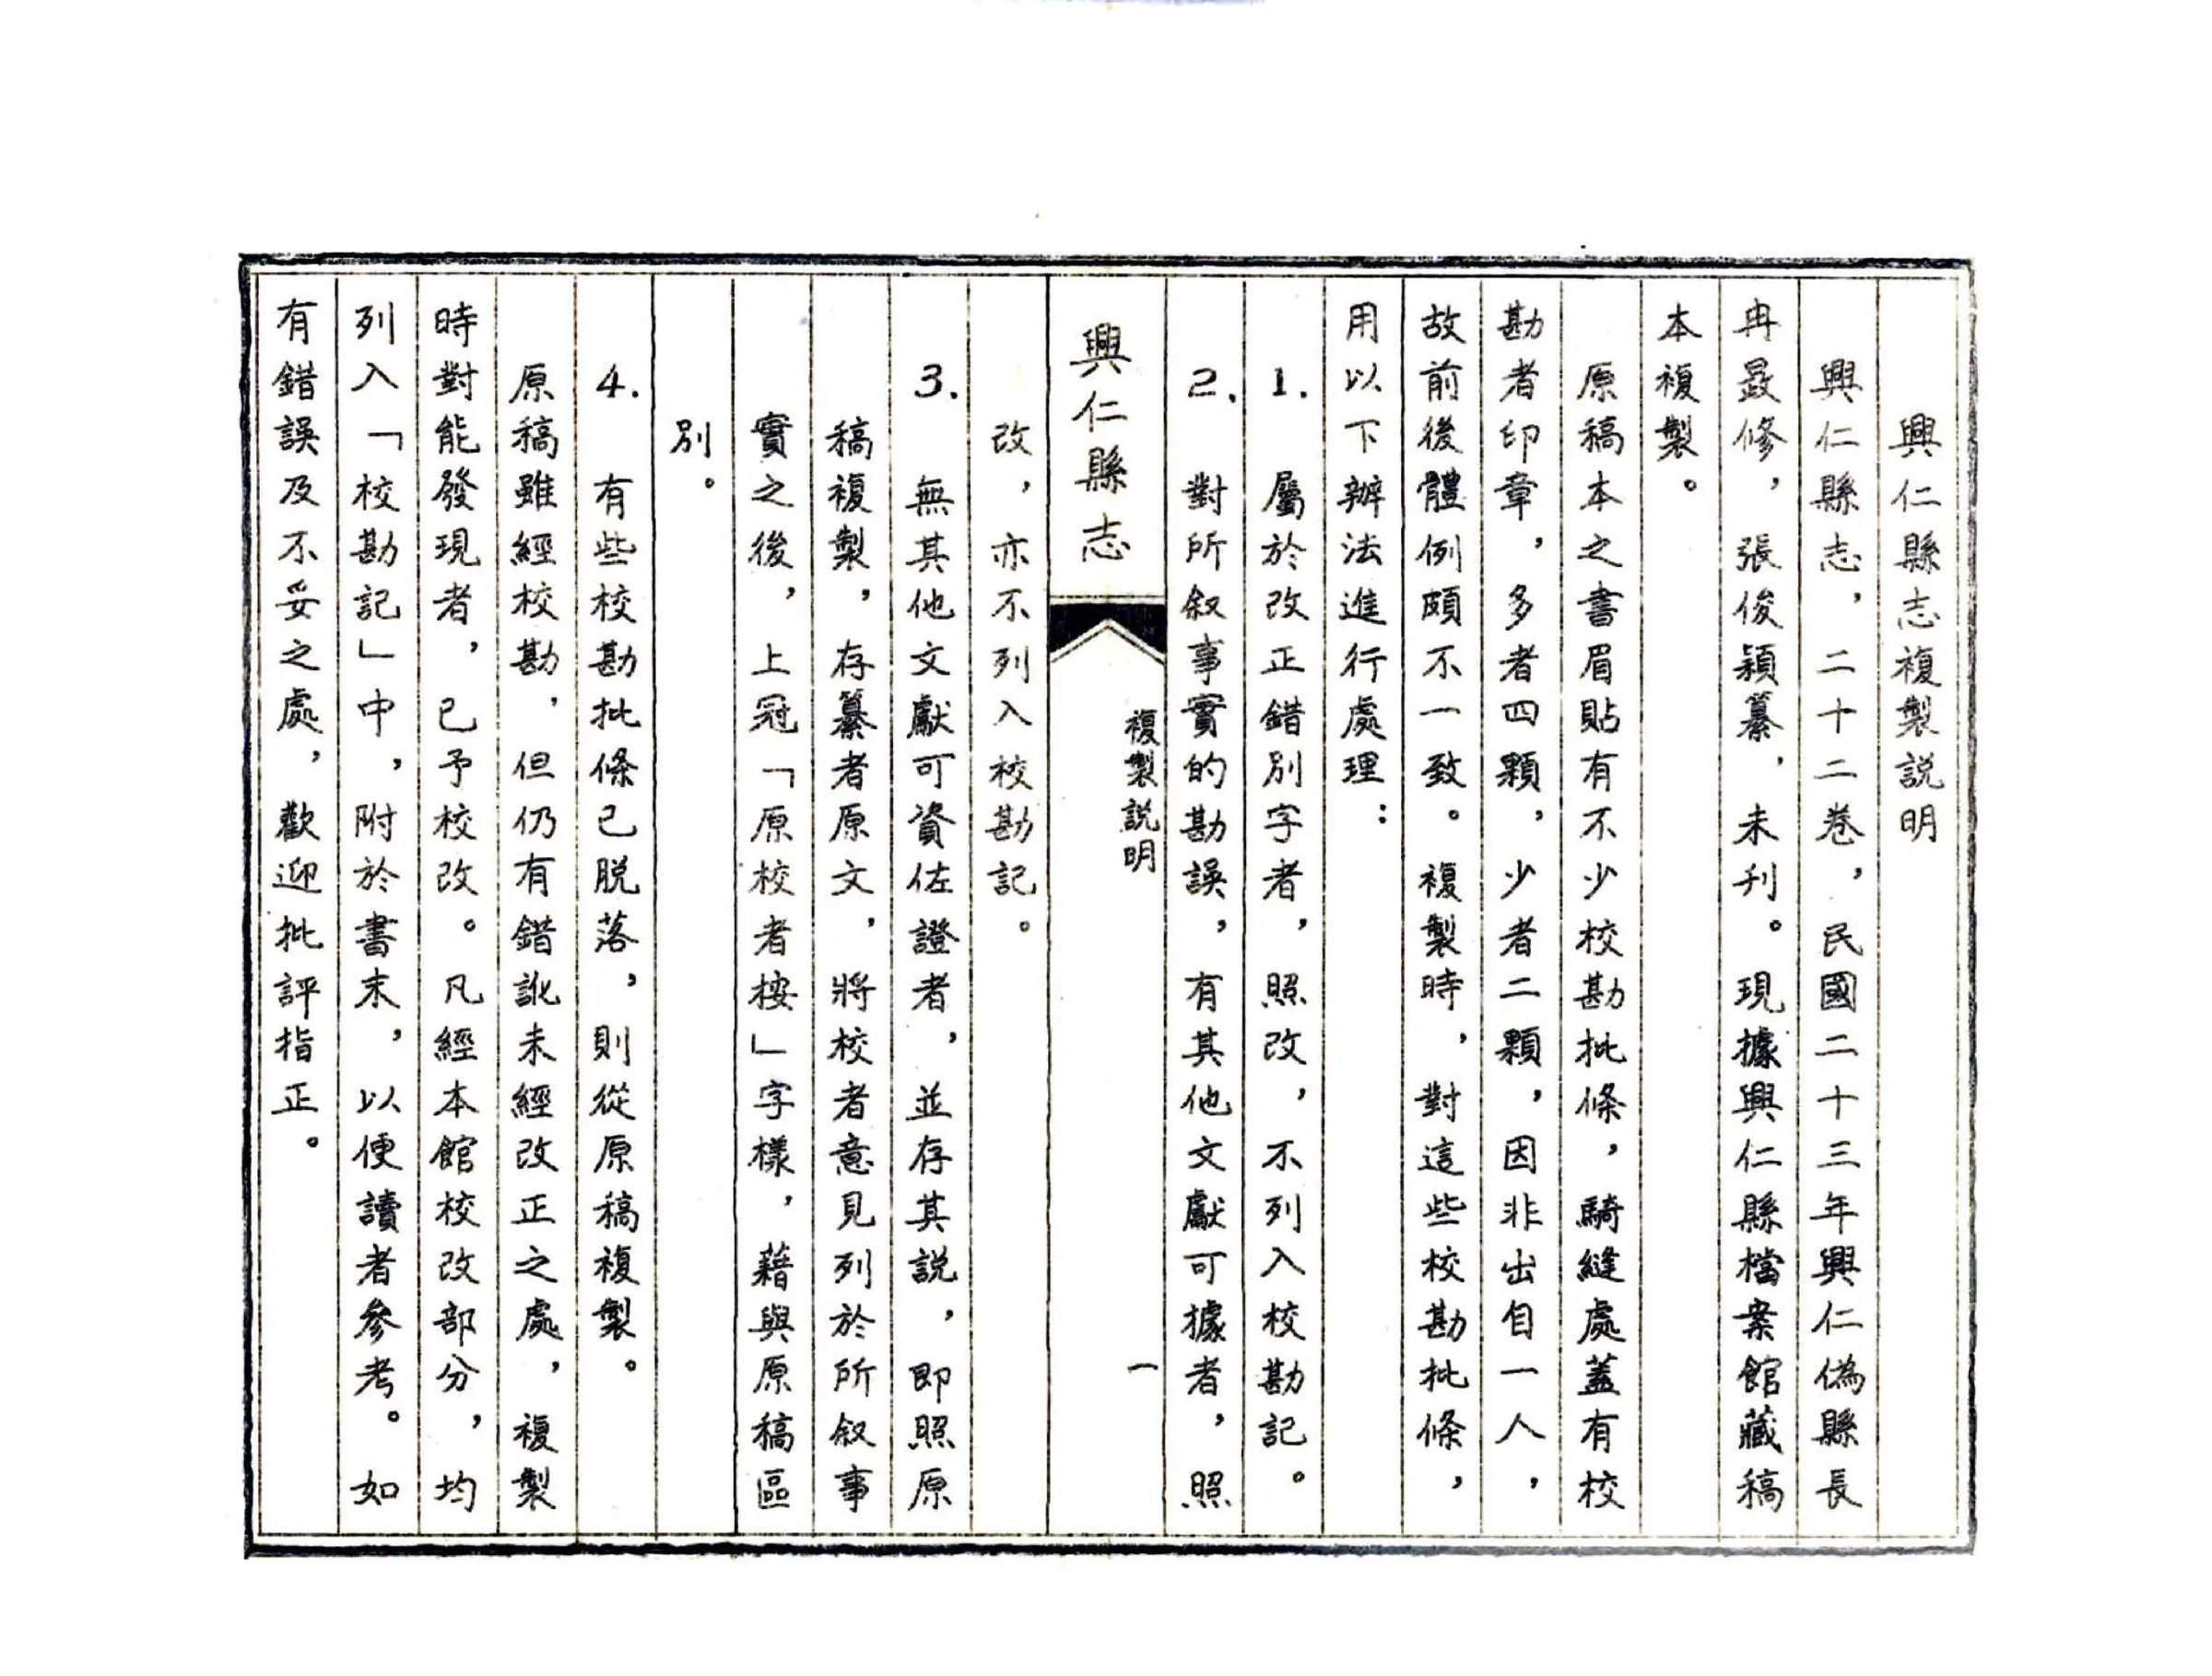 興仁縣志複製説明
興仁縣志，二十二卷，民國二十三年興仁偽縣長
冉晸修，張俊穎纂，未刋。現據興仁縣檔案館藏稿
本複製。
原稿本之書眉貼有不少校勘批條，騎縫處蓋有校
勘者印章，多者四顆，少者二顆，因非出自一人，
故前後體例頗不一致。複製時，對這些校勘批條，
用以下辦法進行處理：
1. 屬於改正錯別字者，照改，不列入校勘記。
2. 對所叙事實的勘誤，有其他文獻可據者，照
興仁縣志
複製説明
一
改，亦不列入校勘記。
3. 無其他文獻可資佐證者，並存其説，即照原
稿複製，存纂者原文，將校者意見列於所叙事
實之後，上冠「原校者按」字樣，藉與原稿區
別。
4. 有些校勘批條已脱落，則從原稿複製。
原稿雖經校勘，但仍有錯訛未經改正之處，複製
時對能發現者，已予校改。凡經本館校改部分，均
列入「校勘記」中，附於書末，以便讀者參考。如
有錯誤及不妥之處，歡迎批評指正。